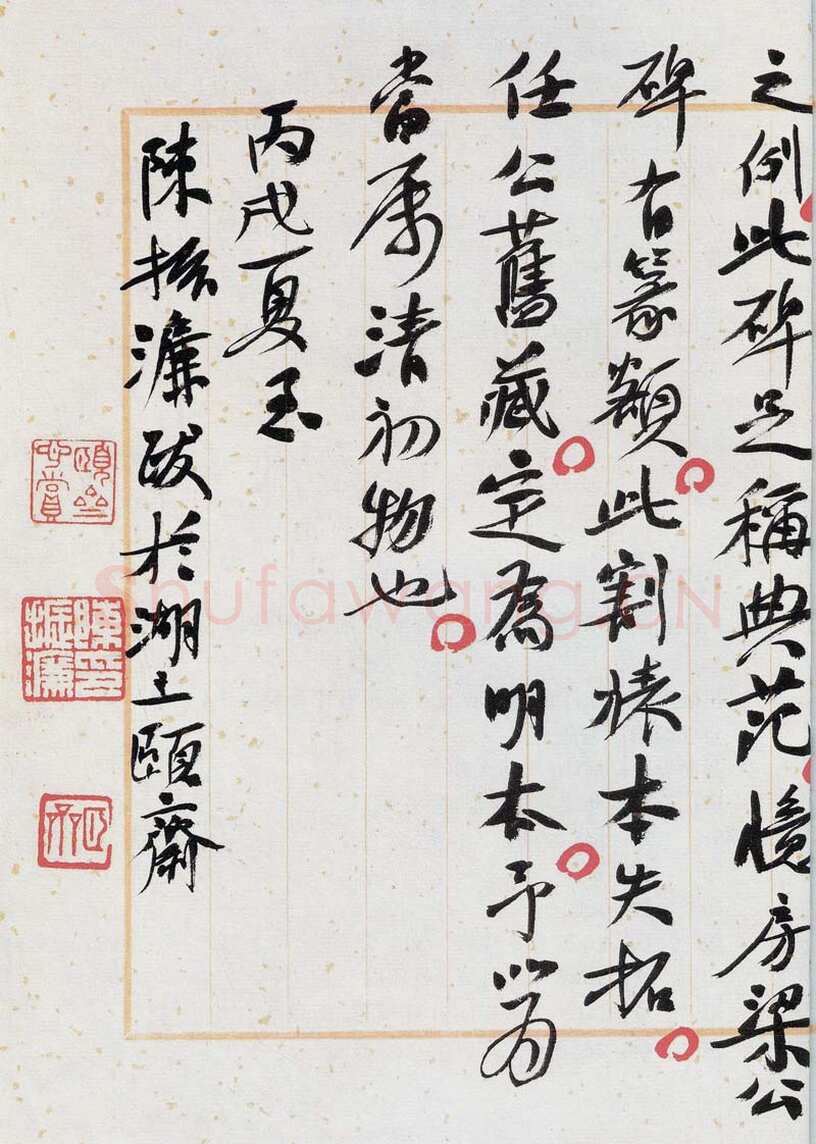 之例此碑足稱典范憶房梁公
碑有篆額此割裱本失拓
任公舊藏定為明本予以為
當屬清初物也
丙戌夏至
陳振濂跋於湖上頤齋
頤齋
陳振濂印
Shufawang.CN